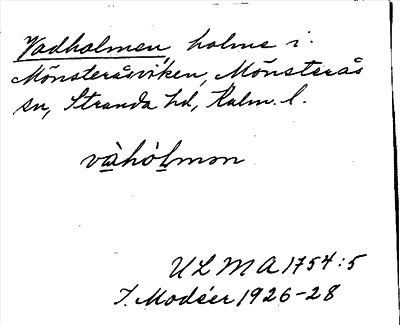 Vadholmen, holme i
Mönsteråsviken, Mönsterås
sn, Stranda hd, Kalm. l.
vàhòlmən
ULMA 1754:5
I. Modéer 1926-28